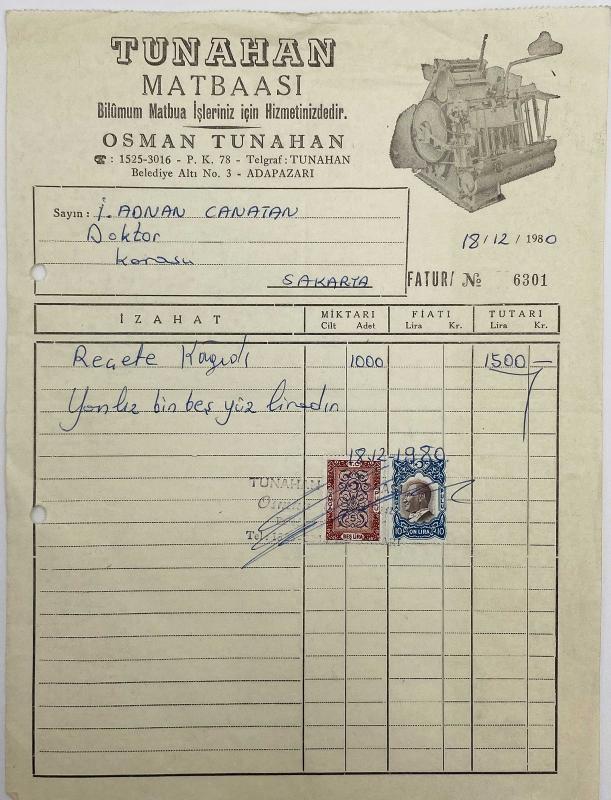 TUNAHAN
MATBAASI
Bilûmum Matbua İşleriniz için Hizmetinizdedir.
OSMAN TUNAHAN
☎ : 1525-3016 - P. K. 78 - Telgraf : TUNAHAN
Belediye Altı No. 3 - ADAPAZARI
Sayın : İ. ADNAN CANATAN
Doktor
Karasu
SAKARYA
18/12/1980
FATURA № 6301
İZAHAT
MİKTARI
Cilt Adet
FİATI
Lira Kr.
TUTARI
Lira Kr.
Reçete Kağıdı 1000 1500 —
Yanlız bin beş yüz liradır
18.12.1980
TUNAHAN
Tel:
BEŞ LİRA
10 ON LİRA 10